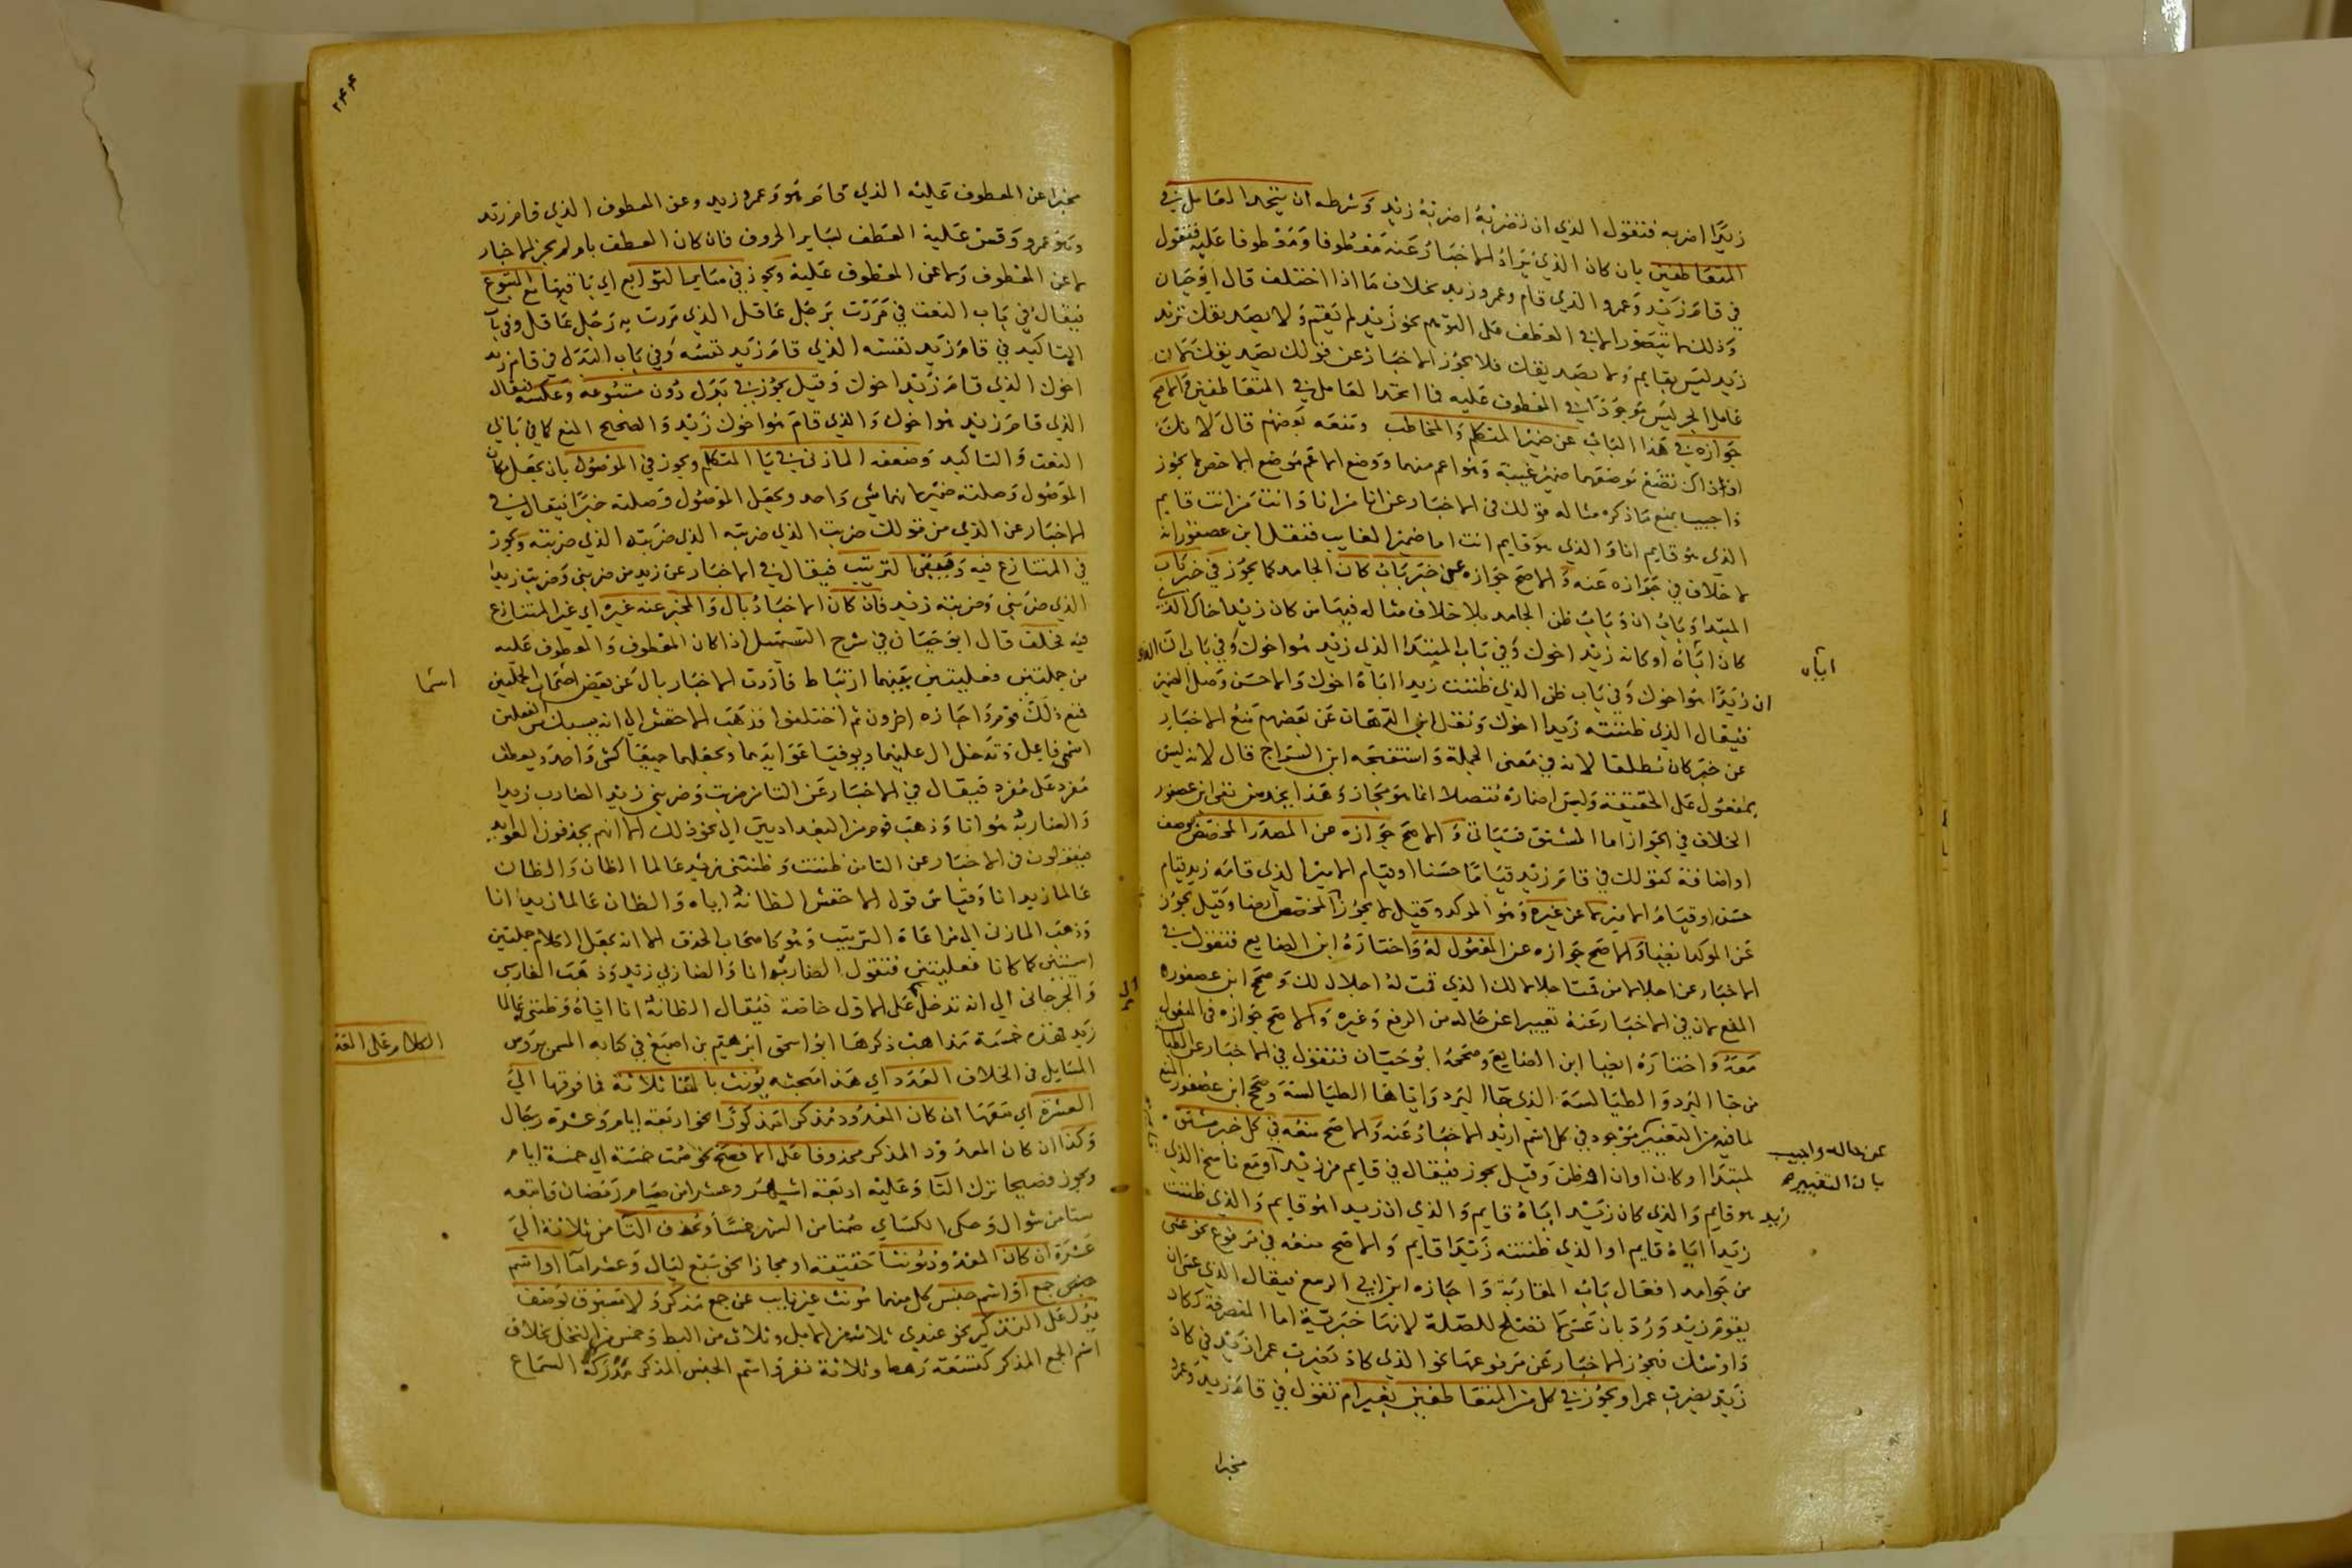 زيدًا اضربه فتقول الذي ان تضربْهُ اضربْهُ زيد وشرطه ان يتحد العامل في
المتعاطفين بان كان الذي يُراد الاخبار عنه معطوفا ومعطوفا عليه فتقول
في قام زيد وعمرو الذي قام وعمرو زيد بخلاف ما اذا اختلف قال ابو حيان
وذلك لا يتصور الا في العطف على التوهم نحو زيد لم يقم ولا بصديقك تريد
زيد ليس بقايم ولا بصديقك فلا يجوز الاخبار عن قولك بصديقك لان
عامل الجر ليس موجودًا في المعطوف عليه فما اتحد العامل في المتعاطفين والاصح
جوازه في هذا الباب عن ضمير المتكلم والمخاطب ومنعه بعضهم قال لانك
اذ ذاك تضع موضعهما ضمير غيبة وهو اعم منهما ووضع الاعم موضع الاخص لا يجوز
واجيب بمنع ما ذكره مثاله قولك في الاخبار عن انا من انا وانت من انت قايم
الذي هو قايم انا والذي هو قايم انت اما ضمير الغايب فنقل ابن عصفور انه
لا خلاف في جوازه عنه والاصح جوازه على خبر باب كان الجامد كما يجوز في خبر باب
المبتدا وباب ان وباب ظن الجامد بلا خلاف مثاله فيها من كان زيد اخاك الذي
كان اياه او كانه زيد اخوك وفي باب المبتدا الذي زيد هوا خوك وفي باب ان الذي
اياه
ان زيدًا هو اخوك وفي باب ظن الذي ظننت زيدا اياه اخوك والاحسن وصل الضمير
فيقال الذي ظننته زيدا اخوك ونقل ابن الدهان عن بعضهم منع الاخبار
عن خبر كان مطلقا لانه في معنى الجملة واستقبحه ابن السراج قال لانه ليس
بمفعول على الحقيقة وليس اضماره متصلا انما هو مجاز وهذا يخدش نفي ابن عصفور
الخلاف في الجواز اما المشتق فسياتي والاصح جوازه عن المصدر المخصص بوصف
او اضافة كقولك في قام زيد قياما حسنا او قيام الامير الذي قامه زيد قيام
حسن او قيام الامير لا عن غيره وهو الموكد وقيل لا يجوز المخصص ايضا وقيل يجوز
عن الموكد ايضا والاصح جوازه عن المفعول له واختاره ابن الضايع فتقول في
الاخبار عن اجلالا من قمت اجلالا لك الذي قمت له اجلال لك وصحح ابن عصفور
المنع لان في الاخبار عنه تغييرا عن حاله من الرفع وغيره والاصح جوازه في المفعول
معه واختاره ايضا ابن الضايع وصححه ابو حيان فتقول في الاخبار عن الطيا
من جا البرد والطيالسة الذي جا البرد واياها الطيالسة وصحح ابن عصفور المنع
لما فيه من التغيير موجود في كل اسم اريد الاخبار عنه والاصح منعه في كل خبر مشتق
عن حاله واجيب
بان التغيير
لمبتدا او كان او ان او ظن وقيل يجوز فيقال في قايم من زيد او مع ناسخ الذي
زيد هو قايم والذي كان زيد اياه قايم والذي ان زيدا هو قايم والذي ظننت
زيدا اياه قايم او الذي ظننته زيدا قايم والاصح منعه في مرفوع نحو عسى
من جوامد افعال باب المقاربة واجازه ابن ابي الربيع فيقال الذي عسى ان
يقوم زيد ورد بان عسى لا تصلح للصلة لانها خبرية اما المتصرفة كـكاد
واوشك فيجوز الاخبار عن مرفوعها نحو الذي كاد يضرب عمرا زيد في كاد
زيد يضرب عمرا ويجوز في كل من المتعاطفين بغير ام تقول في قام زيد وعمرو
مخبرا
٢٤٤
مخبرا عن المعطوف عليه الذي قام هو وعمرو زيد وعن المعطوف الذي قام زيد
وهو عمرو وقس عليه العطف بساير الحروف فان كان العطف بام لم يجز الاخبار
لا عن المعطوف ولا عن المعطوف عليه ويجوز في ساير التوابع اي باقيها مع المتبوع
فيقال في باب النعت في مررت برجل عاقل الذي مررت به رجل عاقل وفي باب
التاكيد في قام زيد نفسه الذي قام زيد نفسه وفي باب البدل في قام زيد
اخوك الذي قام زيد اخوك وقيل يجوز في بدل دون متبوعه وعكسه فيقال
الذي قام زيد هوا خوك والذي قام هوا خوك زيد والصحيح المنع كما في بابي
النعت والتاكيد وضعفه المازني في يا المتكلم ويجوز في الموصول بان يجعل مكان
الموصول وصلته ضميرا لانهما شي واحد ويجعل الموصول وصلته خبرا فيقال في
الاخبار عن الذي من قولك ضربت الذي ضربته الذي ضربته الذي ضربته ويجوز
في المتنازع فيه وفي الترتيب فيقال في الاخبار عن زيد من ضربني وضربت زيدا
الذي ضربني وضربته زيد فان كان الاخبار بال والمخبر عنه غيره اي غير المتنازع
فيه فخلف قال ابو حيان في شرح التسهيل اذا كان المعطوف والمعطوف عليه
من جملتين فعليتين بينهما ارتباط فاردت الاخبار بال عن بعض اسما الجملتين
اسما
فمنع ذلك قوم واجازه اخرون ثم اختلفوا فذهب الاخفش الى انه يسبك من الفعلين
اسمي فاعل وتدخل ال عليهما ويوفيا عوايدهما ويجعلهما جميعا كشي واحد ويعطف
مفرد على مفرد فيقال في الاخبار عن التا من ضربت وضربني زيد الضارب زيدا
والضاربه هو انا وذهب قوم من البغداديين الى نحو ذلك الا انهم يحذفون العوايد
فيقولون في الاخبار عن التا من ظننت وظنني زيد عالما الظان والظان
عالما زيد انا وقياس قول الاخفش الظانه اياه والظان عالما زيد انا
وذهب المازني الى مراعاة الترتيب وهو كاصحاب الحذف الا انه يجعل الكلام جملتين
اسميتين كما كانا فعليتين فتقول الضاربه انا والضاربي زيد وذهب الفارسي
والجرجاني الى انه تدخل ال على الاول خاصة فيقال الظانه انا اياه وظنني عالما
زيد فهذه خمسة مذاهب ذكرها ابو اسحق ابرهيم بن اصبغ في كتابه المسمى بروس
المسايل في الخلاف العدد اي هذا مبحثه يونث بالتا ثلاثة فما فوقها الى
الكلام على العدد
العشرة اي معها ان كان المعدود مذكرا مذكورا نحو اربعة ايام وعشرة رجال
وكذا ان كان المعدود المذكر محذوفا على الافصح نحو صمت خمسة اي خمسة ايام
ويجوز فصيحا ترك التا وعليه اربعة اشهر وعشرا من صام رمضان فاتبعه
ستا من شوال وحكى الكساي صمنا من الشهر خمسا وتحذف التا من ثلاثة الى
عشرة ان كان المعدود مونثا حقيقة او مجازا نحو سبع ليال وعشر اما او اسم
جنس جمع او اسم جنس كل منهما مونث غير نايب عن جمع مذكر ولا مسبوق بوصف
يدل على التذكير نحو عندي ثلاث من الابل وثلاث من البط وخمس من النخل بخلاف
اسم الجمع المذكر كتسعة رهط وثلاثة نفر واسم الجنس المذكر مدركه السماع